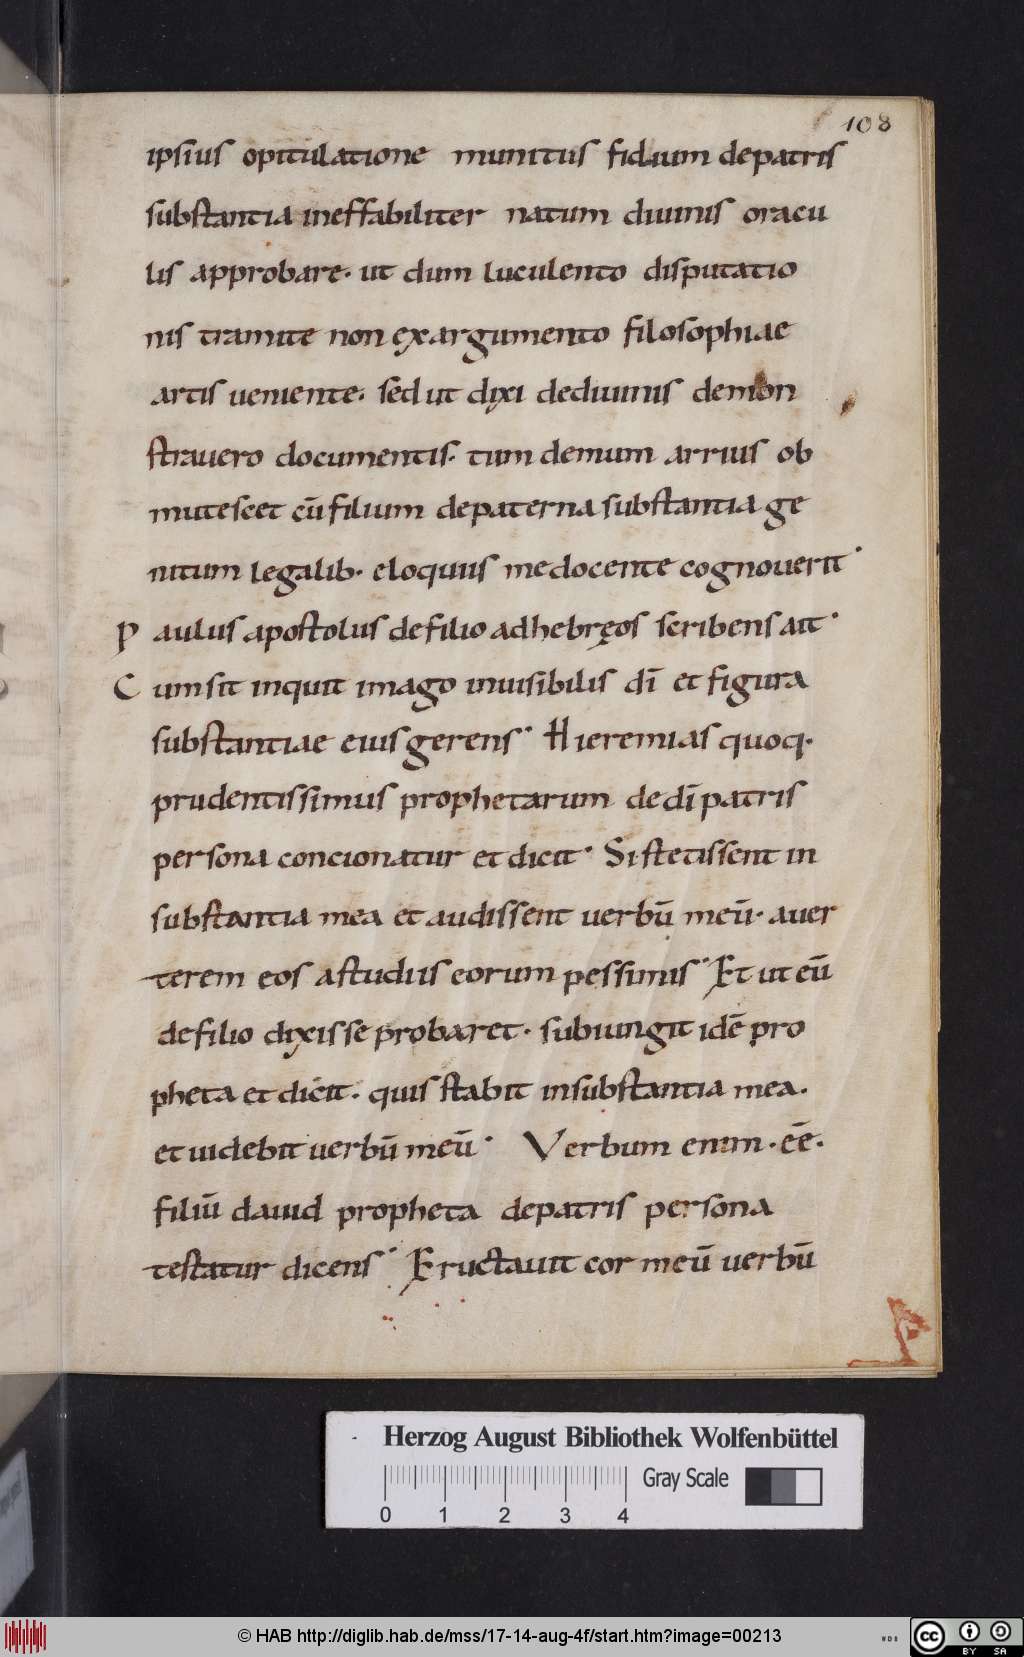 108
ipsius opitulatione munitus fidium depatris
substantia ineffabiliter natum diuinis oracu
lis approbare· ut dum luculento disputatio
nis tramite non exargumento filosophiae
artis ueniente· sed ut dixi dediuinis demon
strauero documentis· tum demum arrius ob
mutescet cū filium depaterna substantia ge
nitum legalib· eloquiis me docente cognouerit·
Paulus apostolus defilio adhebręos scribens ait·
Cum sit inquit imago inuisibilis dī et figura
substantiae eius gerens· Hieremias quoq·
prudentissimus prophetarum de dī patris
persona concionatur et dicit· Si stetissent in
substantia mea et audissent uerbū meū· auer
terem eos a studiis eorum pessimis· Et ut eū
defilio dixisse probaret· subiungit idē pro
pheta et dicit· quis stabit insubstantia mea·
et uidebit uerbū meū· Verbum enim · eē·
filiū dauid propheta depatris persona
testatur dicens· Eructauit cor meū uerbū
Herzog August Bibliothek Wolfenbüttel
Gray Scale
0 1 2 3 4
© HAB http://diglib.hab.de/mss/17-14-aug-4f/start.htm?image=00213
WDB
cc BY SA